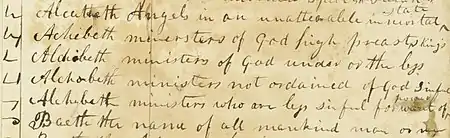 state
Alcatheth Angels in an unalterable immortal
Achebeth ministers of God high preasts Kings
Aldobeth ministers of God under or the less
Alchobeth ministers not ordained of God sinful
Alchubeth ministers who are less sinful for want of
power
Baeth the name of all mankind man or